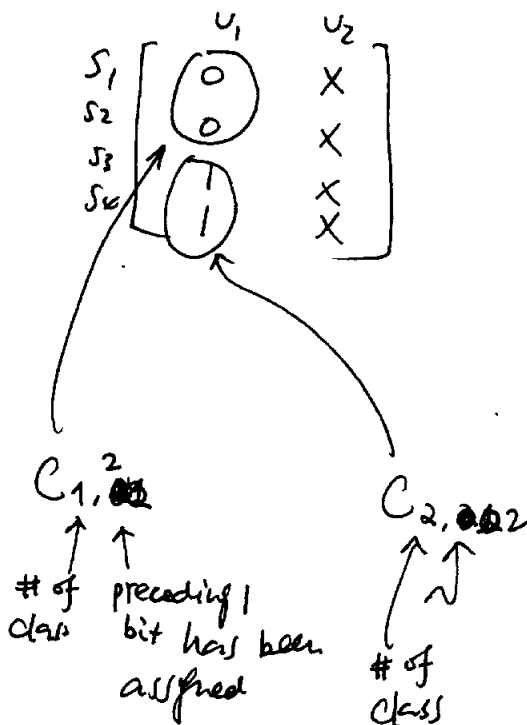 U1 U2
S1 0 X
S2 0 X
S3 1 X
S4 1 X
C1,2
# of class
preceding 1 bit has been assigned
C2,2
# of class